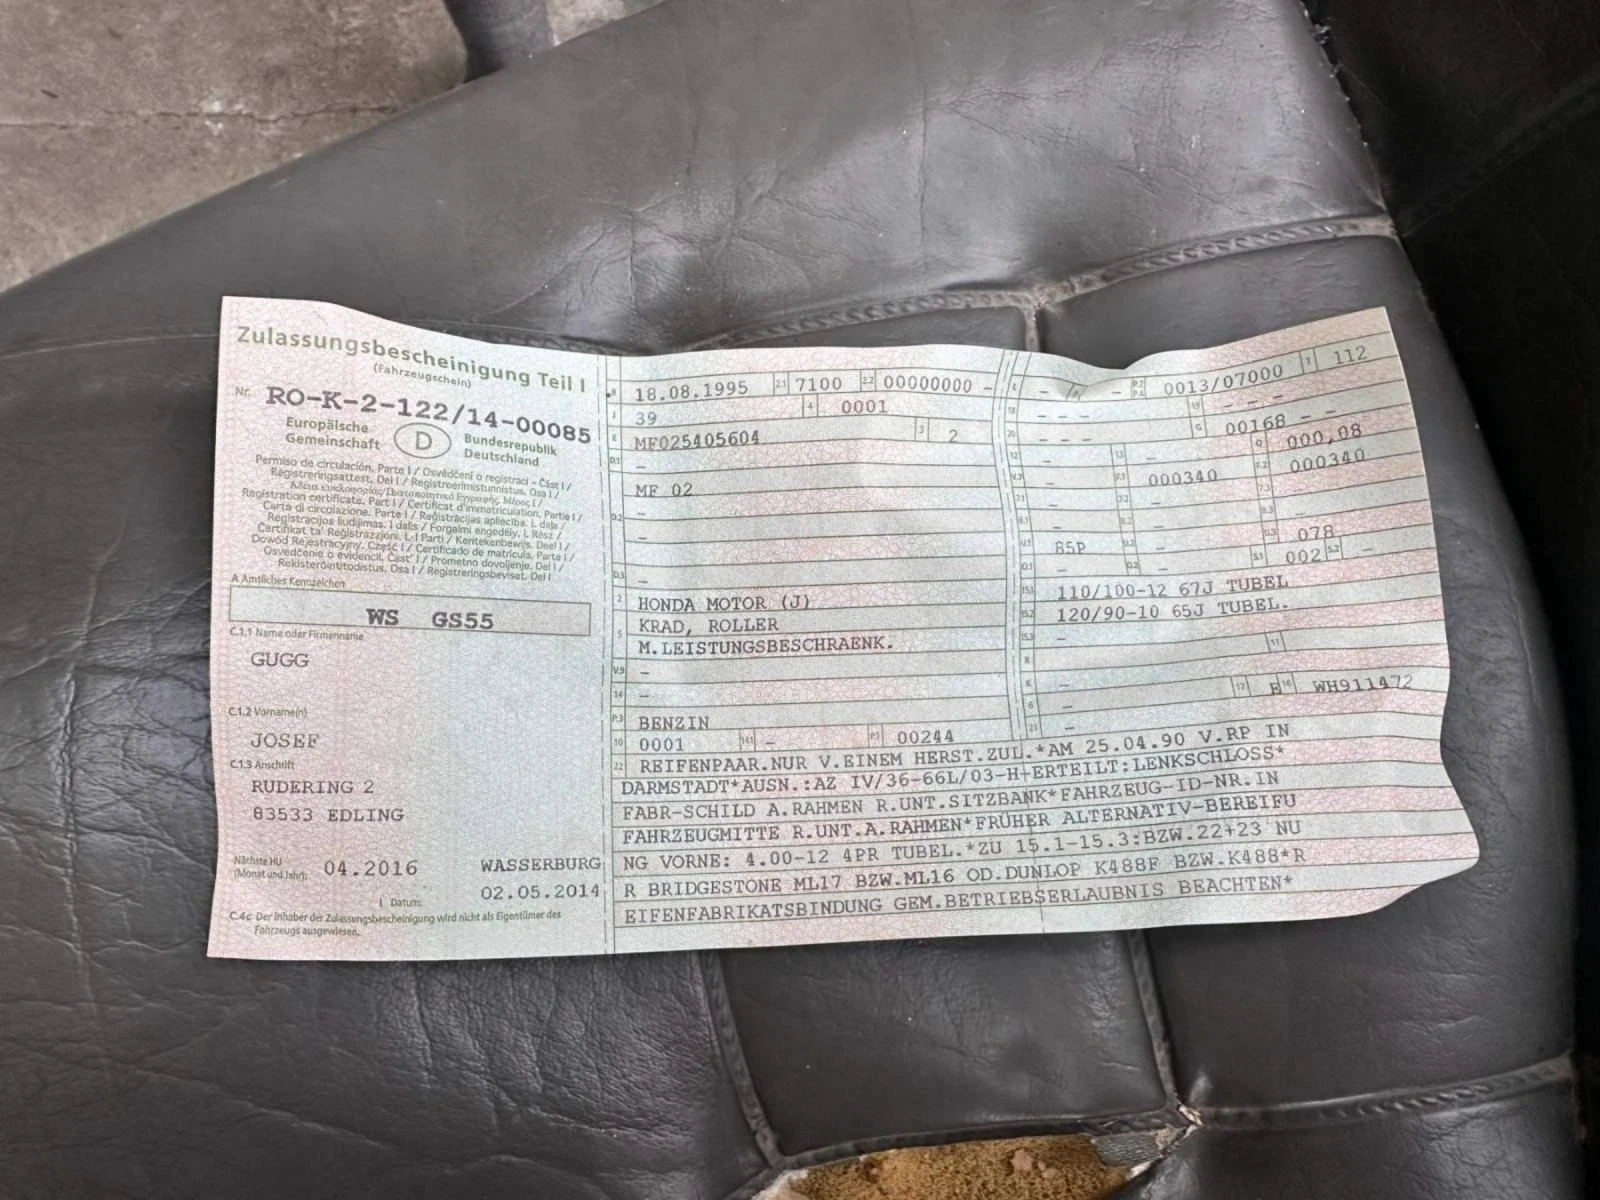 Zulassungsbescheinigung Teil I
(Fahrzeugschein)
Nr. RO-K-2-122/14-00085
Europäische Gemeinschaft
D
Bundesrepublik Deutschland
Permiso de circulación. Parte I / Osvědčení o registraci – Část I /
Registreringsattest. Del I / Registreerimistunnistus. Osa I /
Άδεια κυκλοφορίας/Πιστοποιητικό Εγγραφής. Μέρος I /
Registration certificate. Part I / Certificat d'immatriculation. Partie I /
Carta di circolazione. Parte I / Reģistrācijas apliecība. I. daļa /
Registracijos liudijimas. I dalis / Forgalmi engedély. I. Rész /
Ċertifikat ta' Reġistrazzjoni. L-I Parti / Kentekenbewijs. Deel I /
Dowód Rejestracyjny. Część I / Certificado de matrícula. Parte I /
Osvedčenie o evidencii. Časť I / Prometno dovoljenje. Del I /
Rekisteröintitodistus. Osa I / Registreringsbeviset. Del I
A Amtliches Kennzeichen
WS GS55
C.1.1 Name oder Firmenname
GUGG
C.1.2 Vorname(n)
JOSEF
C.1.3 Anschrift
RUDERING 2
83533 EDLING
Nächste HU (Monat und Jahr): 04.2016 WASSERBURG
I Datum: 02.05.2014
C.4c Der Inhaber der Zulassungsbescheinigung wird nicht als Eigentümer des
Fahrzeugs ausgewiesen.
B 18.08.1995 2.1 7100 2.2 00000000 –
J 39 4 0001
E MF025405604 3 2
D.1 –
MF 02
D.2 –
–
D.3 –
2 HONDA MOTOR (J)
5 KRAD, ROLLER
M.LEISTUNGSBESCHRAENK.
V.9 –
14 –
P.3 BENZIN
10 0001 14.1 – P.1 00244
L – – P.2 P.4 0013/07000 T 112
18 – – – 19 – – –
20 – – – G 00168 – –
12 – 13 – Q 000,08
V.7 – F.1 000340 F.2 000340
7.1 – 7.2 – 7.3 –
8.1 – 8.2 – 8.3 –
U.1 85P U.2 – U.3 078
O.1 – O.2 – S.1 002 S.2 –
15.1 110/100-12 67J TUBEL
15.2 120/90-10 65J TUBEL.
15.3 –
R – 11
K – 17 E 16 WH911472
6 –
21 –
22 REIFENPAAR.NUR V.EINEM HERST.ZUL.*AM 25.04.90 V.RP IN
DARMSTADT*AUSN.:AZ IV/36-66L/03-H+ERTEILT:LENKSCHLOSS*
FABR-SCHILD A.RAHMEN R.UNT.SITZBANK*FAHRZEUG-ID-NR.IN
FAHRZEUGMITTE R.UNT.A.RAHMEN*FRÜHER ALTERNATIV-BEREIFU
NG VORNE: 4.00-12 4PR TUBEL.*ZU 15.1-15.3:BZW.22+23 NU
R BRIDGESTONE ML17 BZW.ML16 OD.DUNLOP K488F BZW.K488*R
EIFENFABRIKATSBINDUNG GEM.BETRIEBSERLAUBNIS BEACHTEN*